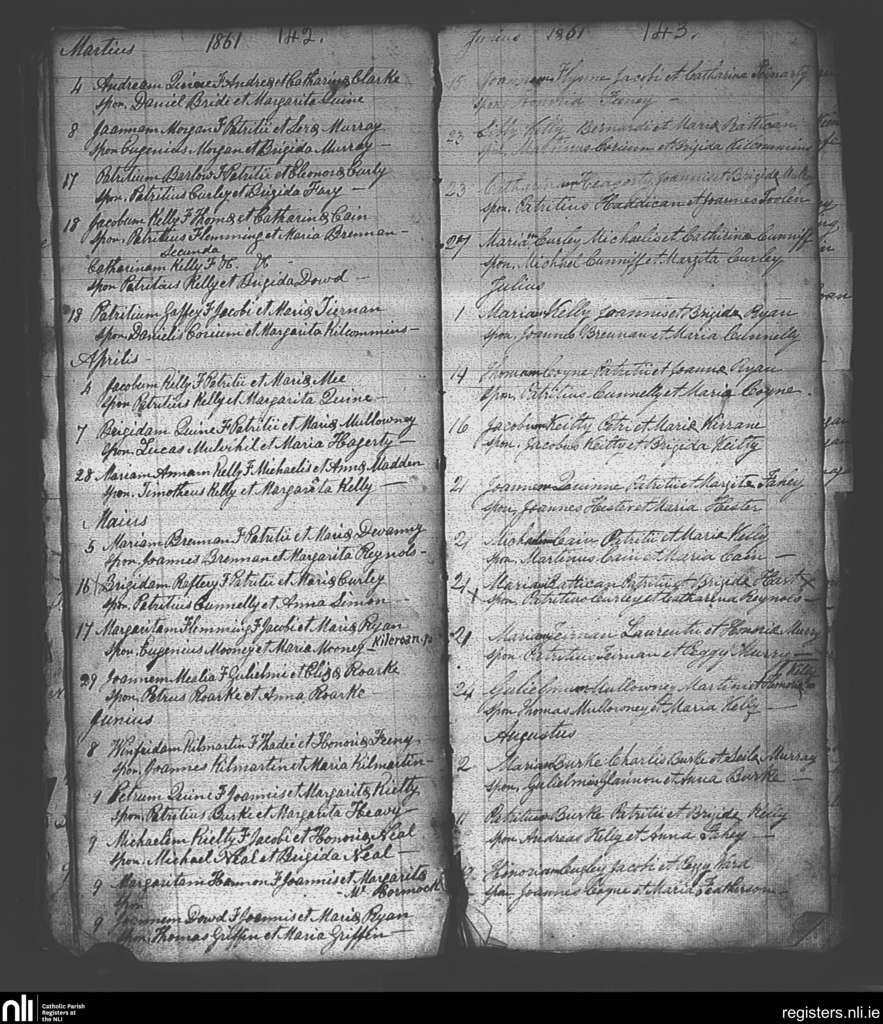 Martius 1861 142.
4 Andream Quine F Andreæ et Catharinæ Clarke
spon. Daniel Bride et Margarita Quine
8 Joannem Morgan F Patritii et Seræ Murray
spon Eugenius Morgan et Brigida Murray -
17 Patritium Barlow F Patritii et Eleonoræ Curly
spon. Patritius Curley et Brigida Fary -
18 Jacobum Kelly F Thomæ et Catharinæ Cain
spon. Patritius Flemming et Maria Brennan -
Secunda
Catharinam Kelly F
spon Patritius Kelly et Brigida Dowd -
18 Patritium Gaffey F Jacobi et Mariæ Tiernan
spon Danielis Corium et Margarita Kilcommins -
Aprilis
4 Jacobum Kelly F Patritii et Mariæ Mee
spon Patritius Kelly et Margarita Quine -
7 Brigidam Quine F Patritii et Mariæ Mullowney
spon. Lucas Mulvihil et Maria Hagerty -
28 Mariam Annam Kelly F Michaelis et Annæ Madden
spon. Timotheus Kelly et Margarita Kelly -
Maius
5 Mariam Brennan F Patritii et Mariæ Devanny
spon. Joannes Brennan et Margarita Reynols -
16 Brigidam Raftery F Patritii et Mariæ Curley
spon. Patritius Cunnelly et Anna Simon -
17 Margaritam Flemming F Jacobi et Mariæ Ryan
spon. Eugenius Mooney et Maria Mooney - Kilcroan
29 Joannem Mealia F Gulielmi et Elizæ Roarke
spon. Petrus Roarke et Anna Roarke
Junius
8 Winfridam Kilmartin F Thadei et Honoriæ Feeny
spon. Joannes Kilmartin et Maria Kilmartin
9 Petrum Quine F Joannis et Margaritæ Kielty
spon. Patritius Burke et Margarita Heavy -
9 Michaelem Kielty F Jacobi et Honoriæ Neal
spon. Michael Neal et Brigida Neal -
9 Margaritam Hannon F Joannis et Margaritæ
spon - Mc Cormock
9 Joannem Dowd F Joannis et Mariæ Ryan
spon. Thomas Griffin et Maria Griffin -
Junius 1861 143.
15 Joannem Flynne Jacobi et Catharinæ
spon Honoria Feney -
23 Kelly Bernardi et Mariæ Rattican
spon. Corium et Brigida Kilcommins
23 Heagerty Joannis et Brigidæ
spon. Patritius Haddican et Joannes Toolen
27 Mariam Curley Michaelis et Catharinæ Cunniff
spon. Michael Cunniff et Margita Curley
Julius
1 Mariam Kelly Joannis et Brigidæ Ryan
spon. Joannes Brennan et Maria Cunnelly
14 Thomam Coyne Patritii et Joannæ Ryan
spon. Patritius Cunnelly et Maria Coyne.
16 Jacobum Keitty Petri et Mariæ Kirrane
spon. Jacobus Keitty et Brigida Keitty
21 Joannem Quinne Patritii et Margitæ Fahey
spon, Joannes Hester et Maria Hester
21 Michalem Cain Patritii et Mariæ Kelly
spon. Martinus Cain et Maria Cain -
21 Mariam Rattican Patritii et Brigidæ Hart x
x spon. Patritius Curley et Catharina Reynols -
21 Mariam Teirnan Laurentii et Honoriæ Murry
spon Patritius Teirnan et Peggy Murry -
24 Gulielmum Mullowney Martini et Honoriæ Kelly
spon Thomas Mullowney et Maria Kelly -
Augustus
2 Mariam Burke Charlis Burke et Seila Murray
spon. Gulielmus Glannon et Anna Burke -
11 Patritius Burke Patritii et Brigidæ Keity
spon Andreas Kelly et Anna Fahey -
Honoriam Jacobi et Peggy Ward
spon. Joannes Coyne et Maria Featherson -
nli Catholic Parish
Registers at
the NLI
registers.nli.ie